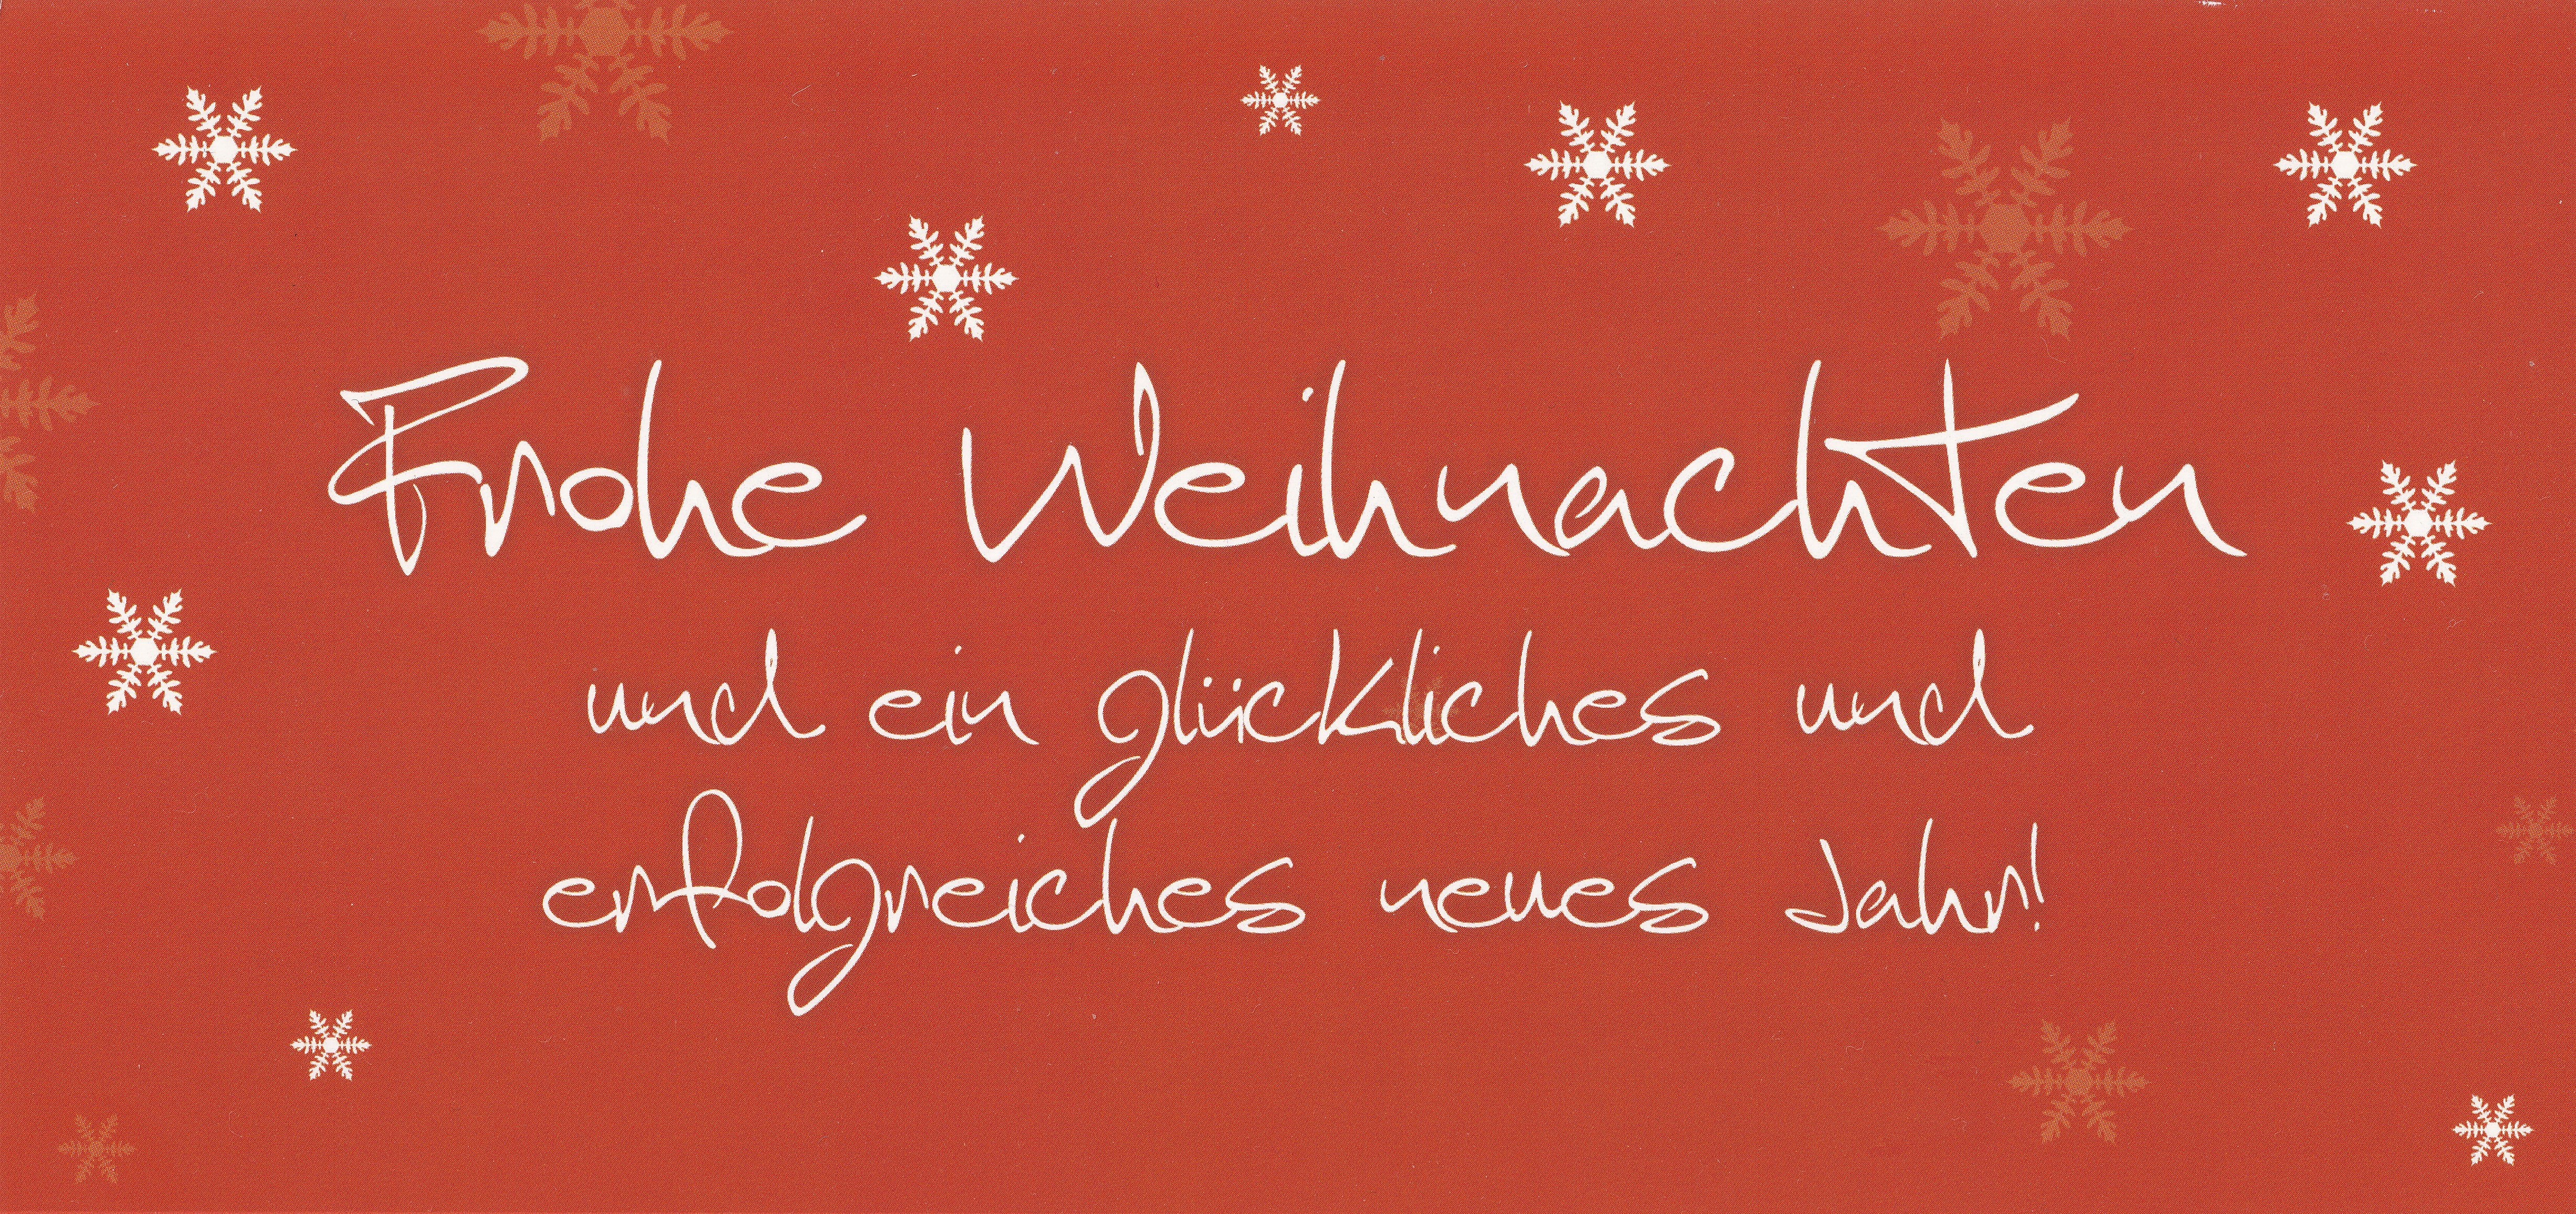 Frohe Weihnachten
und ein glückliches und
erfolgreiches neues Jahr!